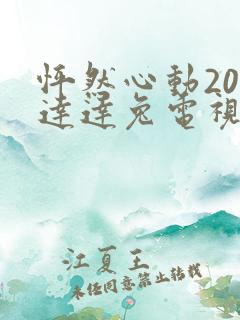 怦然心動20
達達兔電視
江夏王
未任同意禁止转载